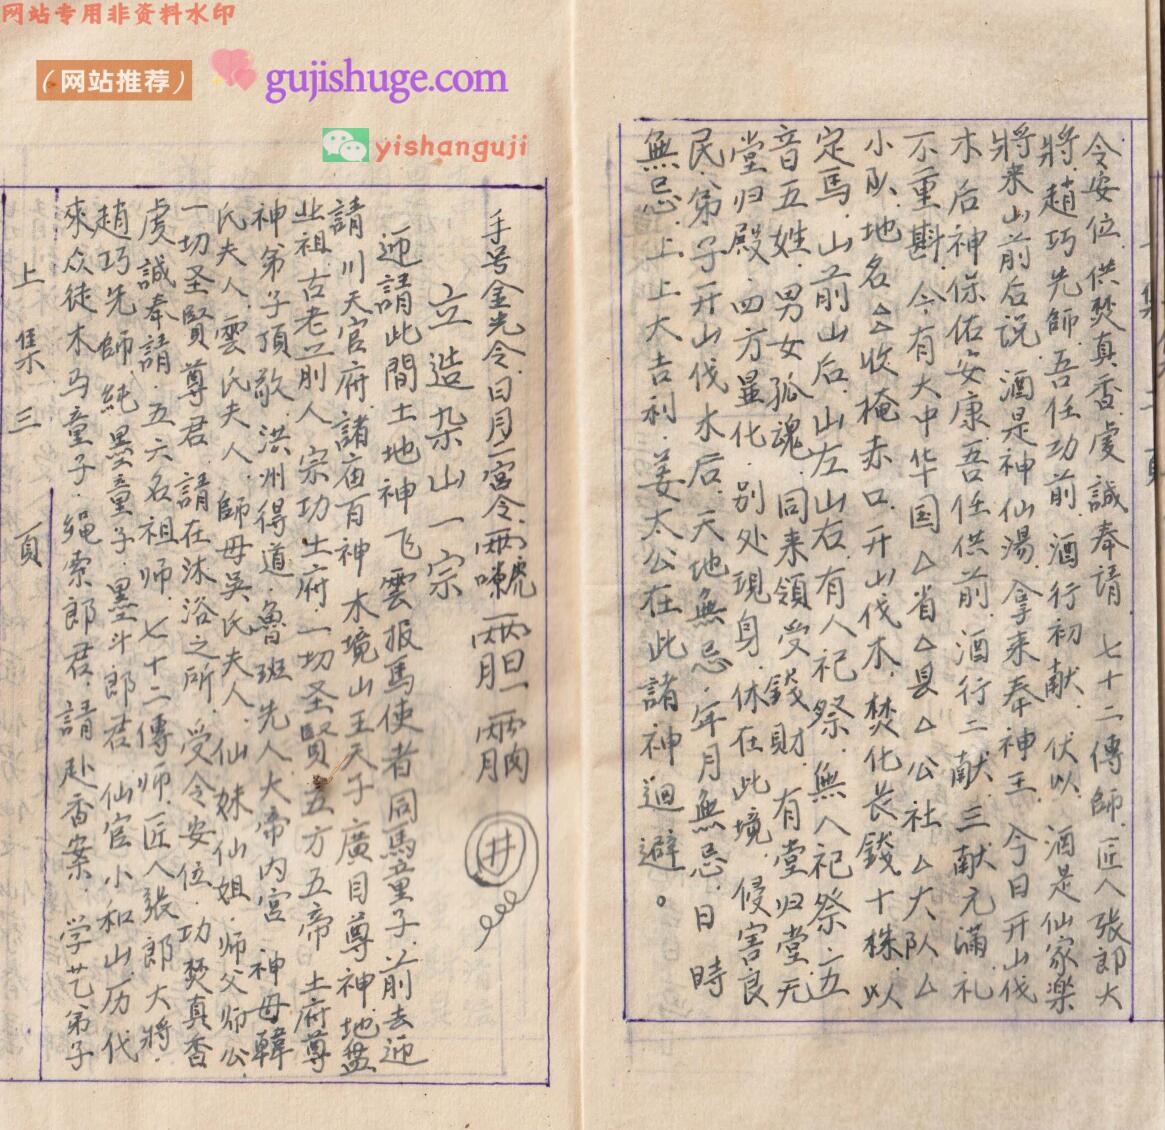 网站专用非资料水印
（网站推荐）
gujishuge.com
yishanguji
令安位.供焚真香.虔誠奉請 七十二傳師.匠人张郎大
將.趙巧先師.吾任功前.酒行初献.伏以.酒是仙家樂
將来山前后说.酒是神仙湯.拿来奉神王.今日开山伐
木后神保佑安康.吾任供前.酒行二献.三献元滿.礼
不重斟.今有大中华国△省△县△公社△大队△
小队.地名△收掩赤口.开山伐木.焚化长錢十株.以
定馬.山前山后.山左山右.有人祀祭.無人祀祭.五
音五姓.男女孤魂.同来領受錢財.有堂归堂.无
堂归殿.四方显化.别处現身.休在此境.侵害良
民.弟子开山伐木后.天地無忌.年月無忌.日 時
無忌.上上大吉利.姜太公在此諸神迴避。
手号金光令.日月二宮令.
立造杂山一宗
迎請此間土地神飞雲报馬使者同馬童子.前去迎
請川天官府諸庙百神木境山王天子廣目尊神.地盘
业祖古老前人 宗功土府.一切圣賢五方五帝 土府尊
神弟子頂敬.洪州得道.魯班先人大帝内宮 神母韓
氏夫人.雲氏夫人.師母吳氏夫人.仙妹仙姐.师父师公.
一切圣賢尊君.請在沐浴之所.受令安位.功焚真香
虔誠奉請.五六名祖师.七十二傳师.匠人張郎大將.
趙巧先師.純墨童子.墨斗郎君.仙官小和山.历代
來众徒木马童子.绳索郎君.請赴香案.学艺弟子
上集三頁